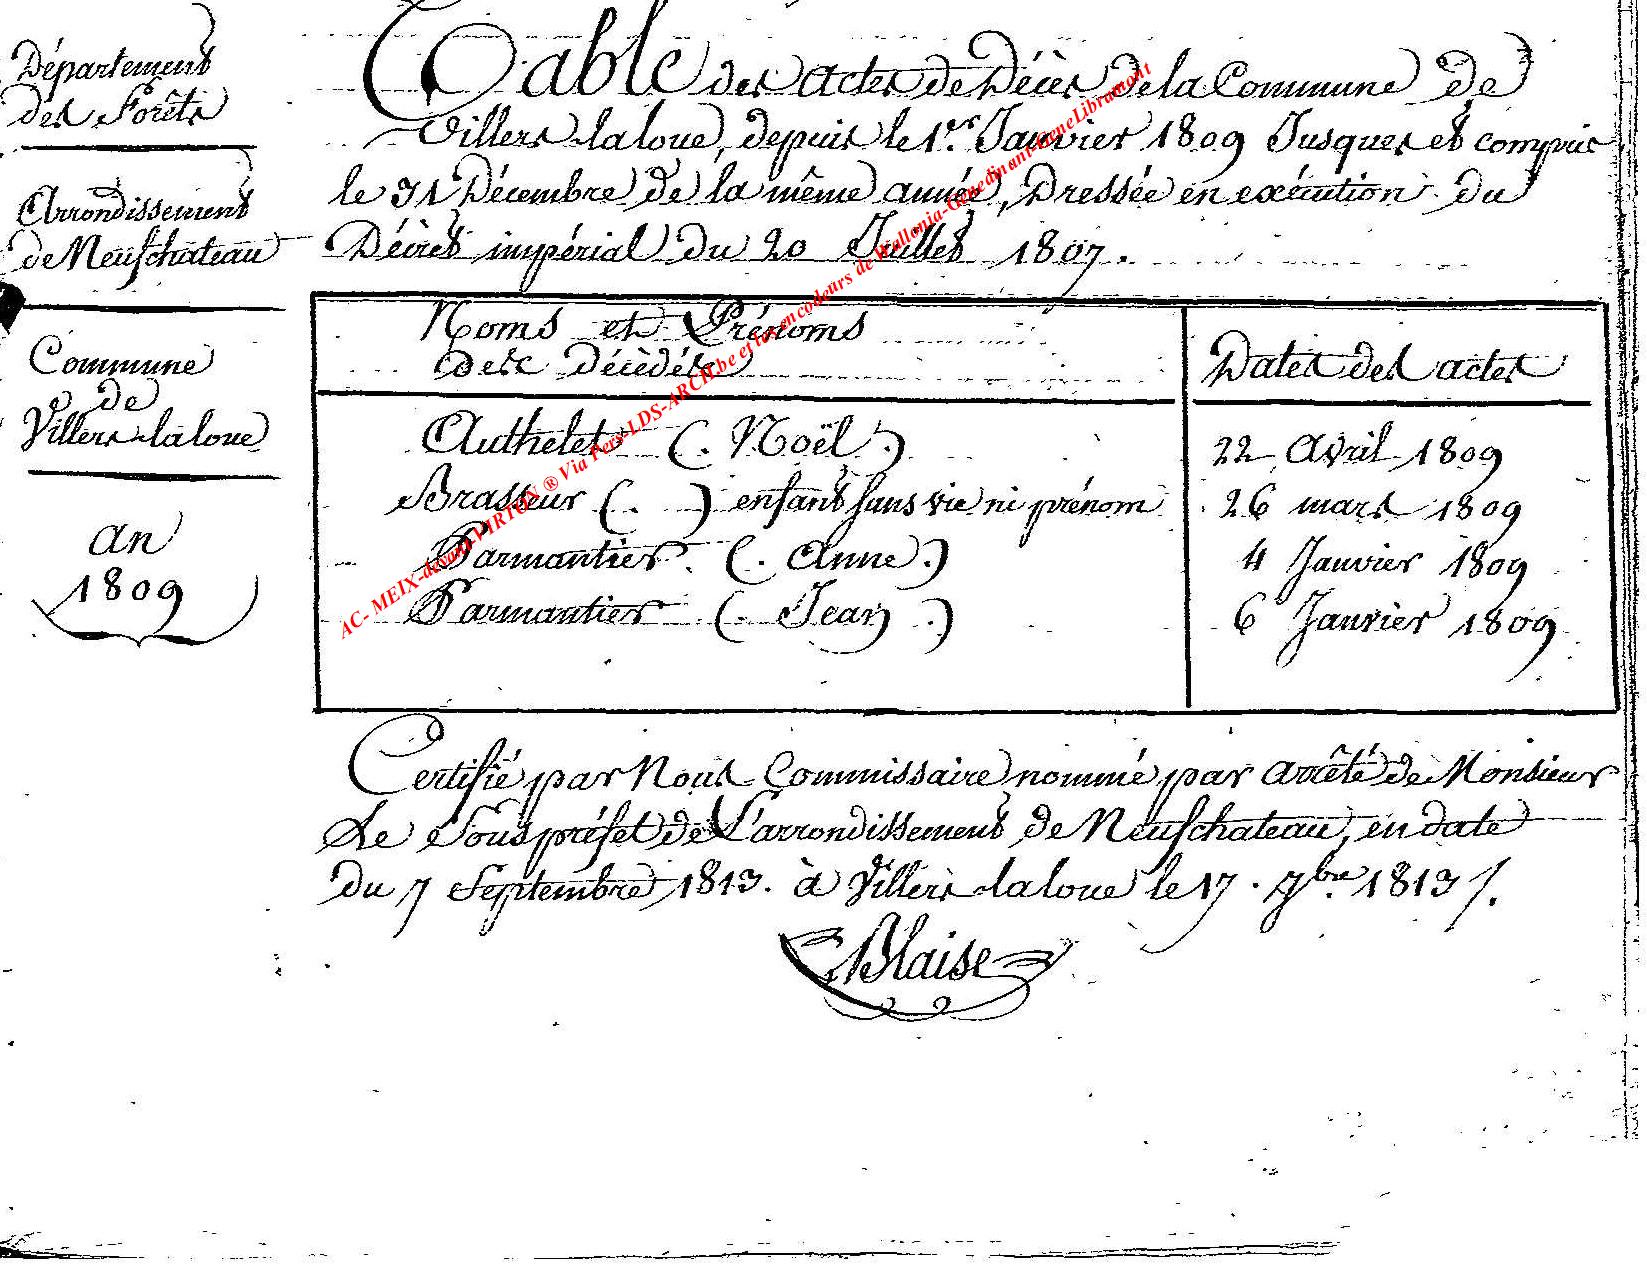 Département
des Forêts
Arrondissement
de Neufchateau
Commune
de
Villers-laloue
an
1809
Table des actes de Décès de la Commune de
Villers-laloue, depuis le 1.er Janvier 1809 Jusques et compris
le 31 Décembre de la même année, Dressée en exécution du
Décret impérial du 20 Juillet 1807.
Noms et Prénoms
des Décèdés
Dates des actes
Authelet (. Noël.) 22 avril 1809
Brasseur (. ) enfant sans vie ni prénom 26 mars 1809
Parmantier. (. Anne.) 4 Janvier 1809
Parmantier (. Jean .) 6 Janvier 1809
Certifié par Nous Commissaire nommé par arrêté de Monsieur
Le Sous préfet de L'arrondissement de Neufchateau, en date
du 7 Septembre 1813. à Villers-laloue le 17. 7bre 1813 /.
Blaise
AC- MEIX-devant-VIRTON ® Via Pers-LDS-ARCH.be et les encodeurs de Wallonia-Genedinant-GeneLibramont